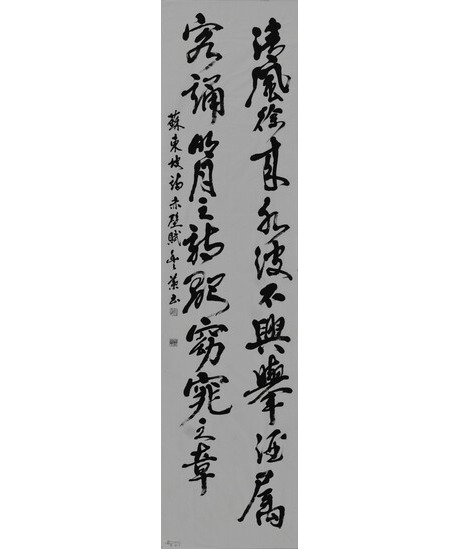 清風徐來水波不興舉酒属
客誦明月之詩歌窈窕之章
蘇東坡 赤壁賦